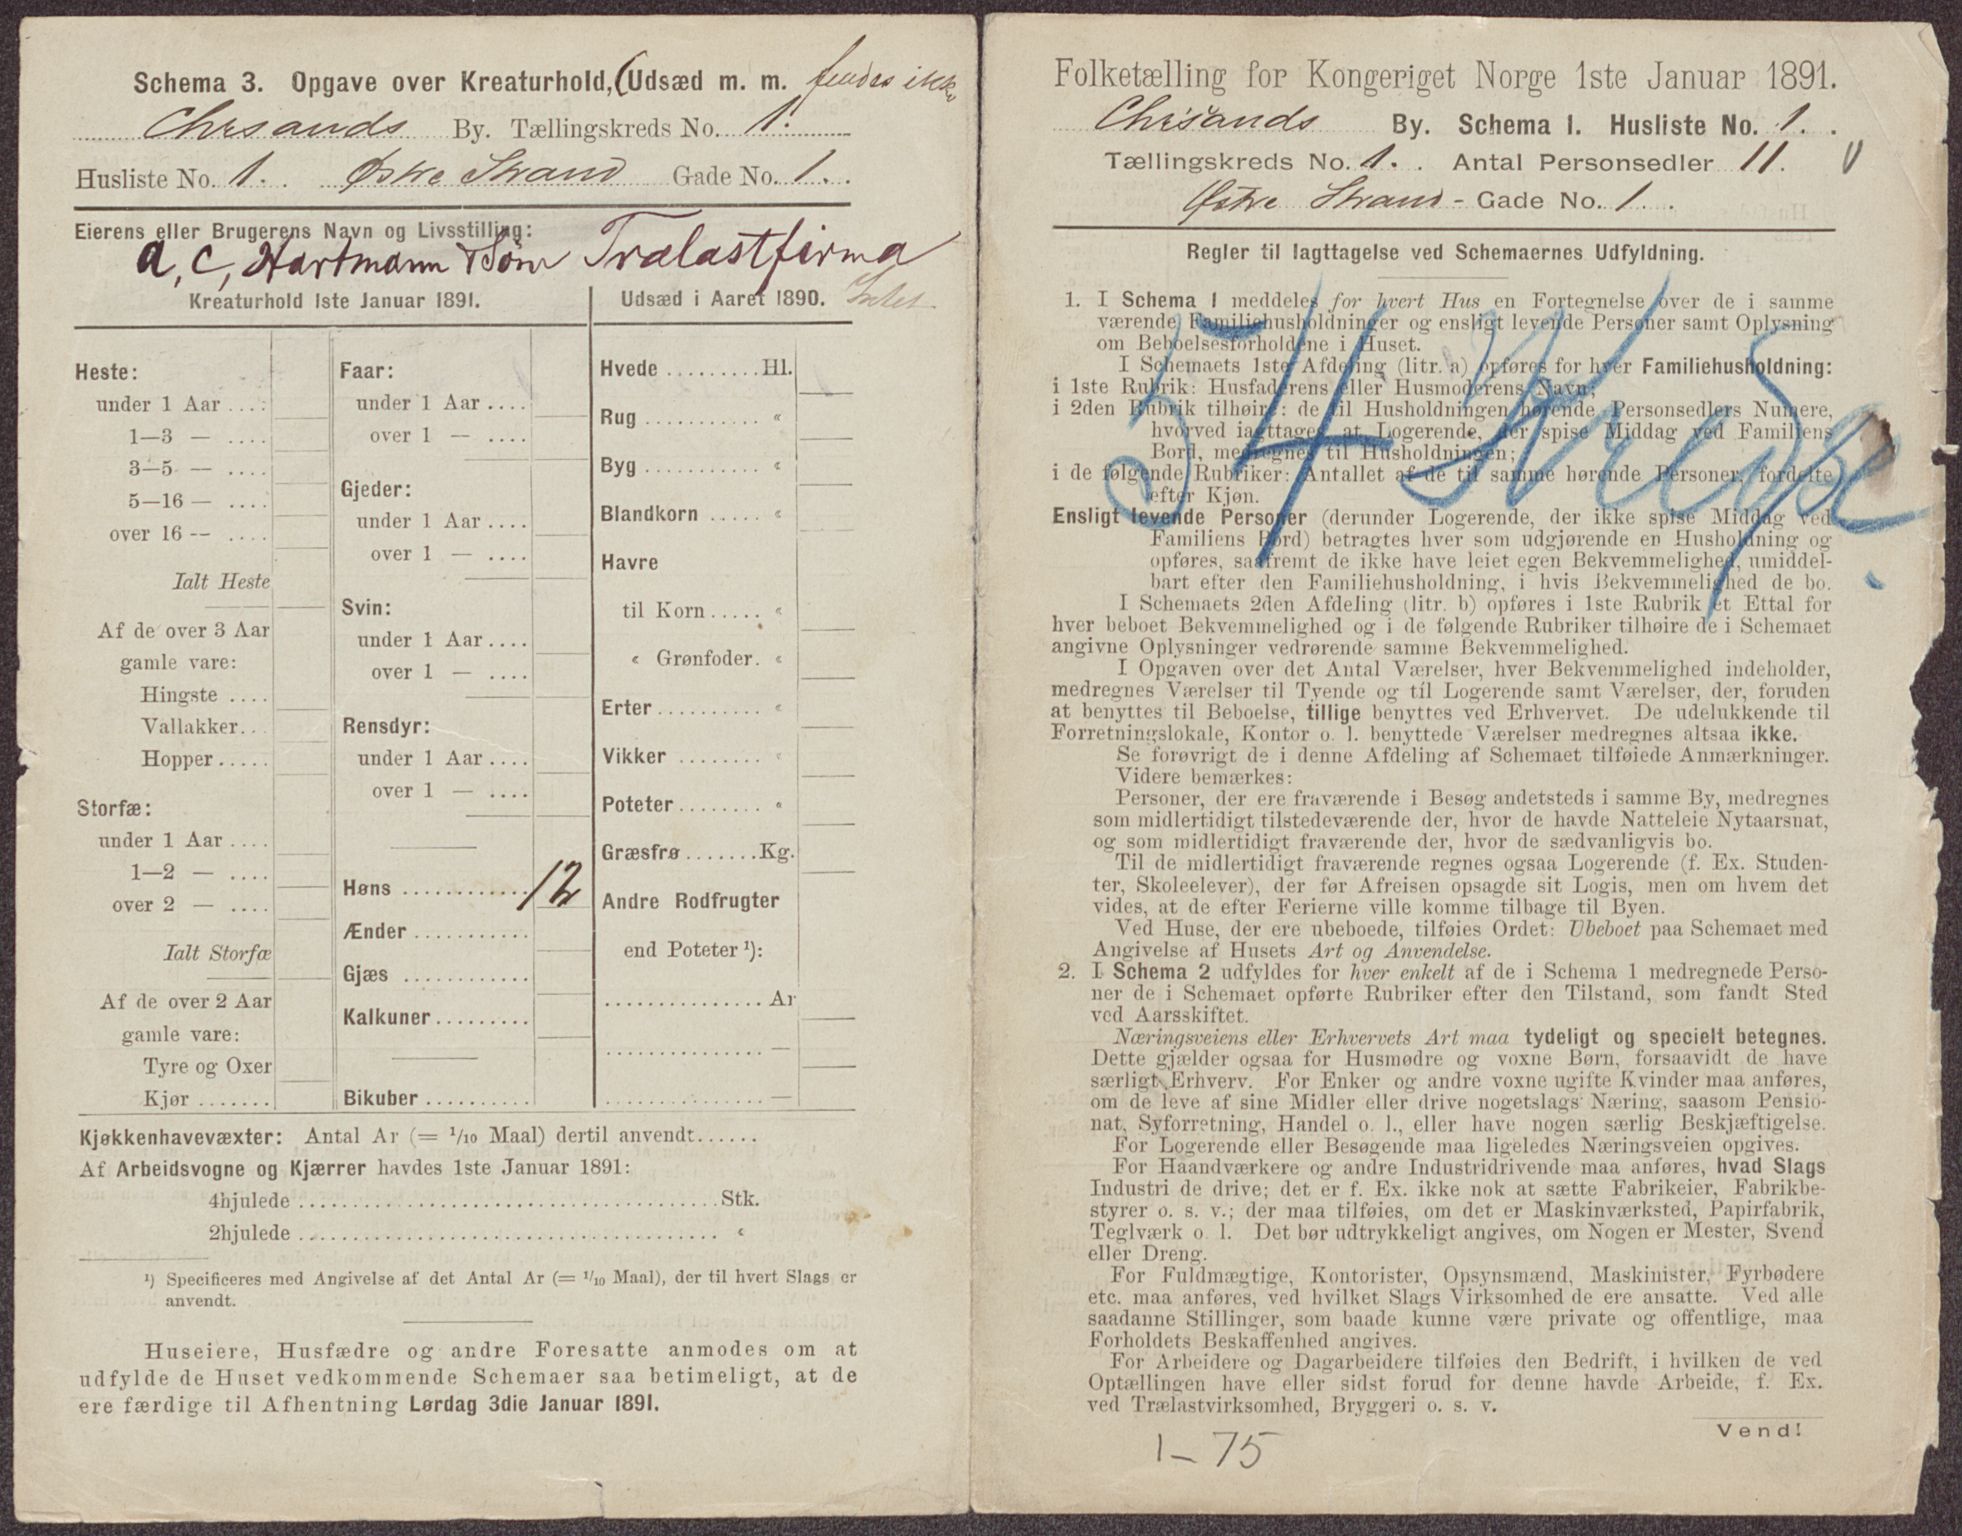 Schema 3. Opgave over Kreaturhold, (Udsæd m. m. findes ikke
Chrsands By. Tællingskreds No. 1.
Husliste No. 1. Østre Strand Gade No. 1.
Eierens eller Brugerens Navn og Livsstilling:
A. C. Hartmann & Søn Trælastfirma
Kreaturhold 1ste Januar 1891.
Udsæd i Aaret 1890. Intet
Heste:
under 1 Aar ....
1—3 — ....
3—5 — ....
5—16 — ....
over 16 -- ....
Ialt Heste
Af de over 3 Aar
gamle vare:
Hingste ....
Vallakker...
Hopper.....
Storfæ:
under 1 Aar ....
1—2 — ....
over 2 — ....
Ialt Storfæ
Af de over 2 Aar
gamle vare:
Tyre og Oxer
Kjør .......
Faar:
under 1 Aar ....
over 1 — ....
Gjeder:
under 1 Aar ....
over 1 — ....
Svin:
under 1 Aar ....
over 1 — ....
Rensdyr:
under 1 Aar ....
over 1 — ....
Høns ............ 12
Ænder ...........
Gjæs ............
Kalkuner.........
Bikuber ..........
Hvede .........Hl.
Rug ........... «
Byg ........... «
Blandkorn ..... «
Havre
til Korn ..... «
« Grønfoder. «
Erter.......... «
Vikker ........ «
Poteter........ «
Græsfrø .......Kg.
Andre Rodfrugter
end Poteter ¹):
............... Ar
............... —
............... —
Kjøkkenhavevæxter: Antal Ar (= 1/10 Maal) dertil anvendt......
Af Arbeidsvogne og Kjærrer havdes 1ste Januar 1891:
4hjulede ....................................... Stk.
2hjulede ....................................... «
¹) Specificeres med Angivelse af det Antal Ar (= 1/10 Maal), der til hvert Slags er
anvendt.
Huseiere, Husfædre og andre Foresatte anmodes om at
udfylde de Huset vedkommende Schemaer saa betimeligt, at de
ere færdige til Afhentning Lørdag 3die Januar 1891.
Folketælling for Kongeriget Norge 1ste Januar 1891.
Chrsands By. Schema 1. Husliste No. 1.
Tællingskreds No. 1. Antal Personsedler 11.
Østre Strand - Gade No. 1.
Regler til Iagttagelse ved Schemaernes Udfyldning.
1. I Schema 1 meddeles for hvert Hus en Fortegnelse over de i samme
værende Familiehusholdninger og ensligt levende Personer samt Oplysning
om Beboelsesforholdene i Huset.
I Schemaets 1ste Afdeling (litr. a) opføres for hver Familiehusholdning:
i 1ste Rubrik: Husfaderens eller Husmoderens Navn;
i 2den Rubrik tilhøire: de til Husholdningen hørende Personsedlers Numere,
hvorved iagttages, at Logerende, der spise Middag ved Familiens
Bord, medregnes til Husholdningen;
i de følgende Rubriker: Antallet af de til samme hørende Personer, fordelte
efter Kjøn.
Ensligt levende Personer (derunder Logerende, der ikke spise Middag ved
Familiens Bord) betragtes hver som udgjørende en Husholdning og
opføres, saafremt de ikke have leiet egen Bekvemmelighed, umiddel-
bart efter den Familiehusholdning, i hvis Bekvemmelighed de bo.
I Schemaets 2den Afdeling (litr. b) opføres i 1ste Rubrik et Ettal for
hver beboet Bekvemmelighed og i de følgende Rubriker tilhøire de i Schemaet
angivne Oplysninger vedrørende samme Bekvemmelighed.
I Opgaven over det Antal Værelser, hver Bekvemmelighed indeholder,
medregnes Værelser til Tyende og til Logerende samt Værelser, der, foruden
at benyttes til Beboelse, tillige benyttes ved Erhvervet. De udelukkende til
Forretningslokale, Kontor o. l. benyttede Værelser medregnes altsaa ikke.
Se forøvrigt de i denne Afdeling af Schemaet tilføiede Anmærkninger.
Videre bemærkes:
Personer, der ere fraværende i Besøg andetsteds i samme By, medregnes
som midlertidigt tilstedeværende der, hvor de havde Natteleie Nytaarsnat,
og som midlertidigt fraværende der, hvor de sædvanligvis bo.
Til de midlertidigt fraværende regnes ogsaa Logerende (f. Ex. Studen-
ter, Skoleelever), der før Afreisen opsagde sit Logis, men om hvem det
vides, at de efter Ferierne ville komme tilbage til Byen.
Ved Huse, der ere ubeboede, tilføies Ordet: Ubeboet paa Schemaet med
Angivelse af Husets Art og Anvendelse.
2. I Schema 2 udfyldes for hver enkelt af de i Schema 1 medregnede Perso-
ner de i Schemaet opførte Rubriker efter den Tilstand, som fandt Sted
ved Aarsskiftet.
Næringsveiens eller Erhvervets Art maa tydeligt og specielt betegnes.
Dette gjælder ogsaa for Husmødre og voxne Børn, forsaavidt de have
særligt Erhverv. For Enker og andre voxne ugifte Kvinder maa anføres,
om de leve af sine Midler eller drive nogetslags Næring, saasom Pensio-
nat, Syforretning, Handel o. l., eller have nogen særlig Beskjæftigelse.
For Logerende eller Besøgende maa ligeledes Næringsveien opgives.
For Haandværkere og andre Industridrivende maa anføres, hvad Slags
Industri de drive; det er f. Ex. ikke nok at sætte Fabrikeier, Fabrikbe-
styrer o. s. v.; der maa tilføies, om det er Maskinværksted, Papirfabrik,
Teglværk o. l. Det bør udtrykkeligt angives, om Nogen er Mester, Svend
eller Dreng.
For Fuldmægtige, Kontorister, Opsynsmænd, Maskinister, Fyrbødere
etc. maa anføres, ved hvilket Slags Virksomhed de ere ansatte. Ved alle
saadanne Stillinger, som baade kunne være private og offentlige, maa
Forholdets Beskaffenhed angives.
For Arbeidere og Dagarbeidere tilføies den Bedrift, i hvilken de ved
Optællingen have eller sidst forud for denne havde Arbeide, f. Ex.
ved Trælastvirksomhed, Bryggeri o. s. v.
Vend!
1-75